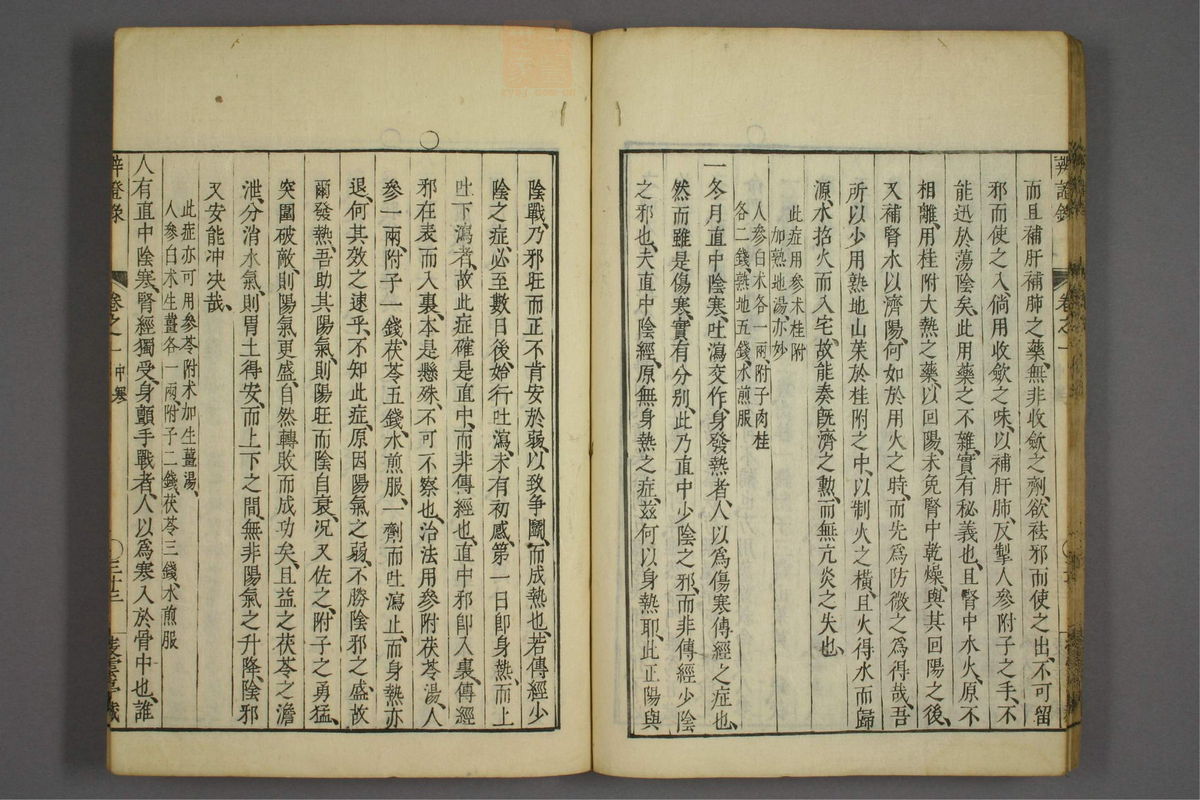 而且補肝補肺之藥無非收歛之劑欲袪邪而使之出不可留
邪而使之入倘用收歛之味以補肝肺反掣人參附子之手不
能迅於蕩陰矣此用藥之不雜實有秘義也且腎中水火原不
相離用桂附大熱之藥以回陽未免腎中乾燥與其回陽之後
又補腎水以濟陽何如於用火之時而先為防微之為得哉吾
所以少用熟地山茱於桂附之中以制火之橫且火得水而歸
源水招火而入宅故能奏既濟之勳而無亢炎之失也
此症用參术桂附
加熟地湯亦妙
人參白术各一兩附子肉桂
各二錢熟地五錢水煎服
一冬月直中陰寒吐瀉交作身發熱者人以為傷寒傳經之症也
然而雖是傷寒實有分別此乃直中少陰之邪而非傳經少陰
之邪也夫直中陰經原無身熱之症茲何以身熱耶此正陽與
辨證錄
卷之一
陰戰乃邪旺而正不肯安於弱以致爭鬭而成熱也若傳經少
陰之症必至數日後始行吐瀉未有初感第一日即身熱而上
吐下瀉者故此症確是直中而非傳經也直中邪即入裏傳經
邪在表而入裏本是懸殊不可不察也治法用參附茯苓湯人
參一兩附子一錢茯苓五錢水煎服一劑而吐瀉止而身熱亦
退何其效之速乎不知此症原因陽氣之弱不勝陰邪之盛故
爾發熱吾助其陽氣則陽旺而陰自衰况又佐之附子之勇猛
突圍破敵則陽氣更盛自然轉敗而成功矣且益之茯苓之澹
泄分消水氣則胃土得安而上下之間無非陽氣之升降陰邪
又安能冲决哉
此症亦可用參苓附术加生薑湯
人參白术生薑各一兩附子二錢茯苓三錢水煎服
人有直中陰寒腎經獨受身顫手戰者人以為寒入於骨中也誰
辨證錄
卷之一
中寒
三十三